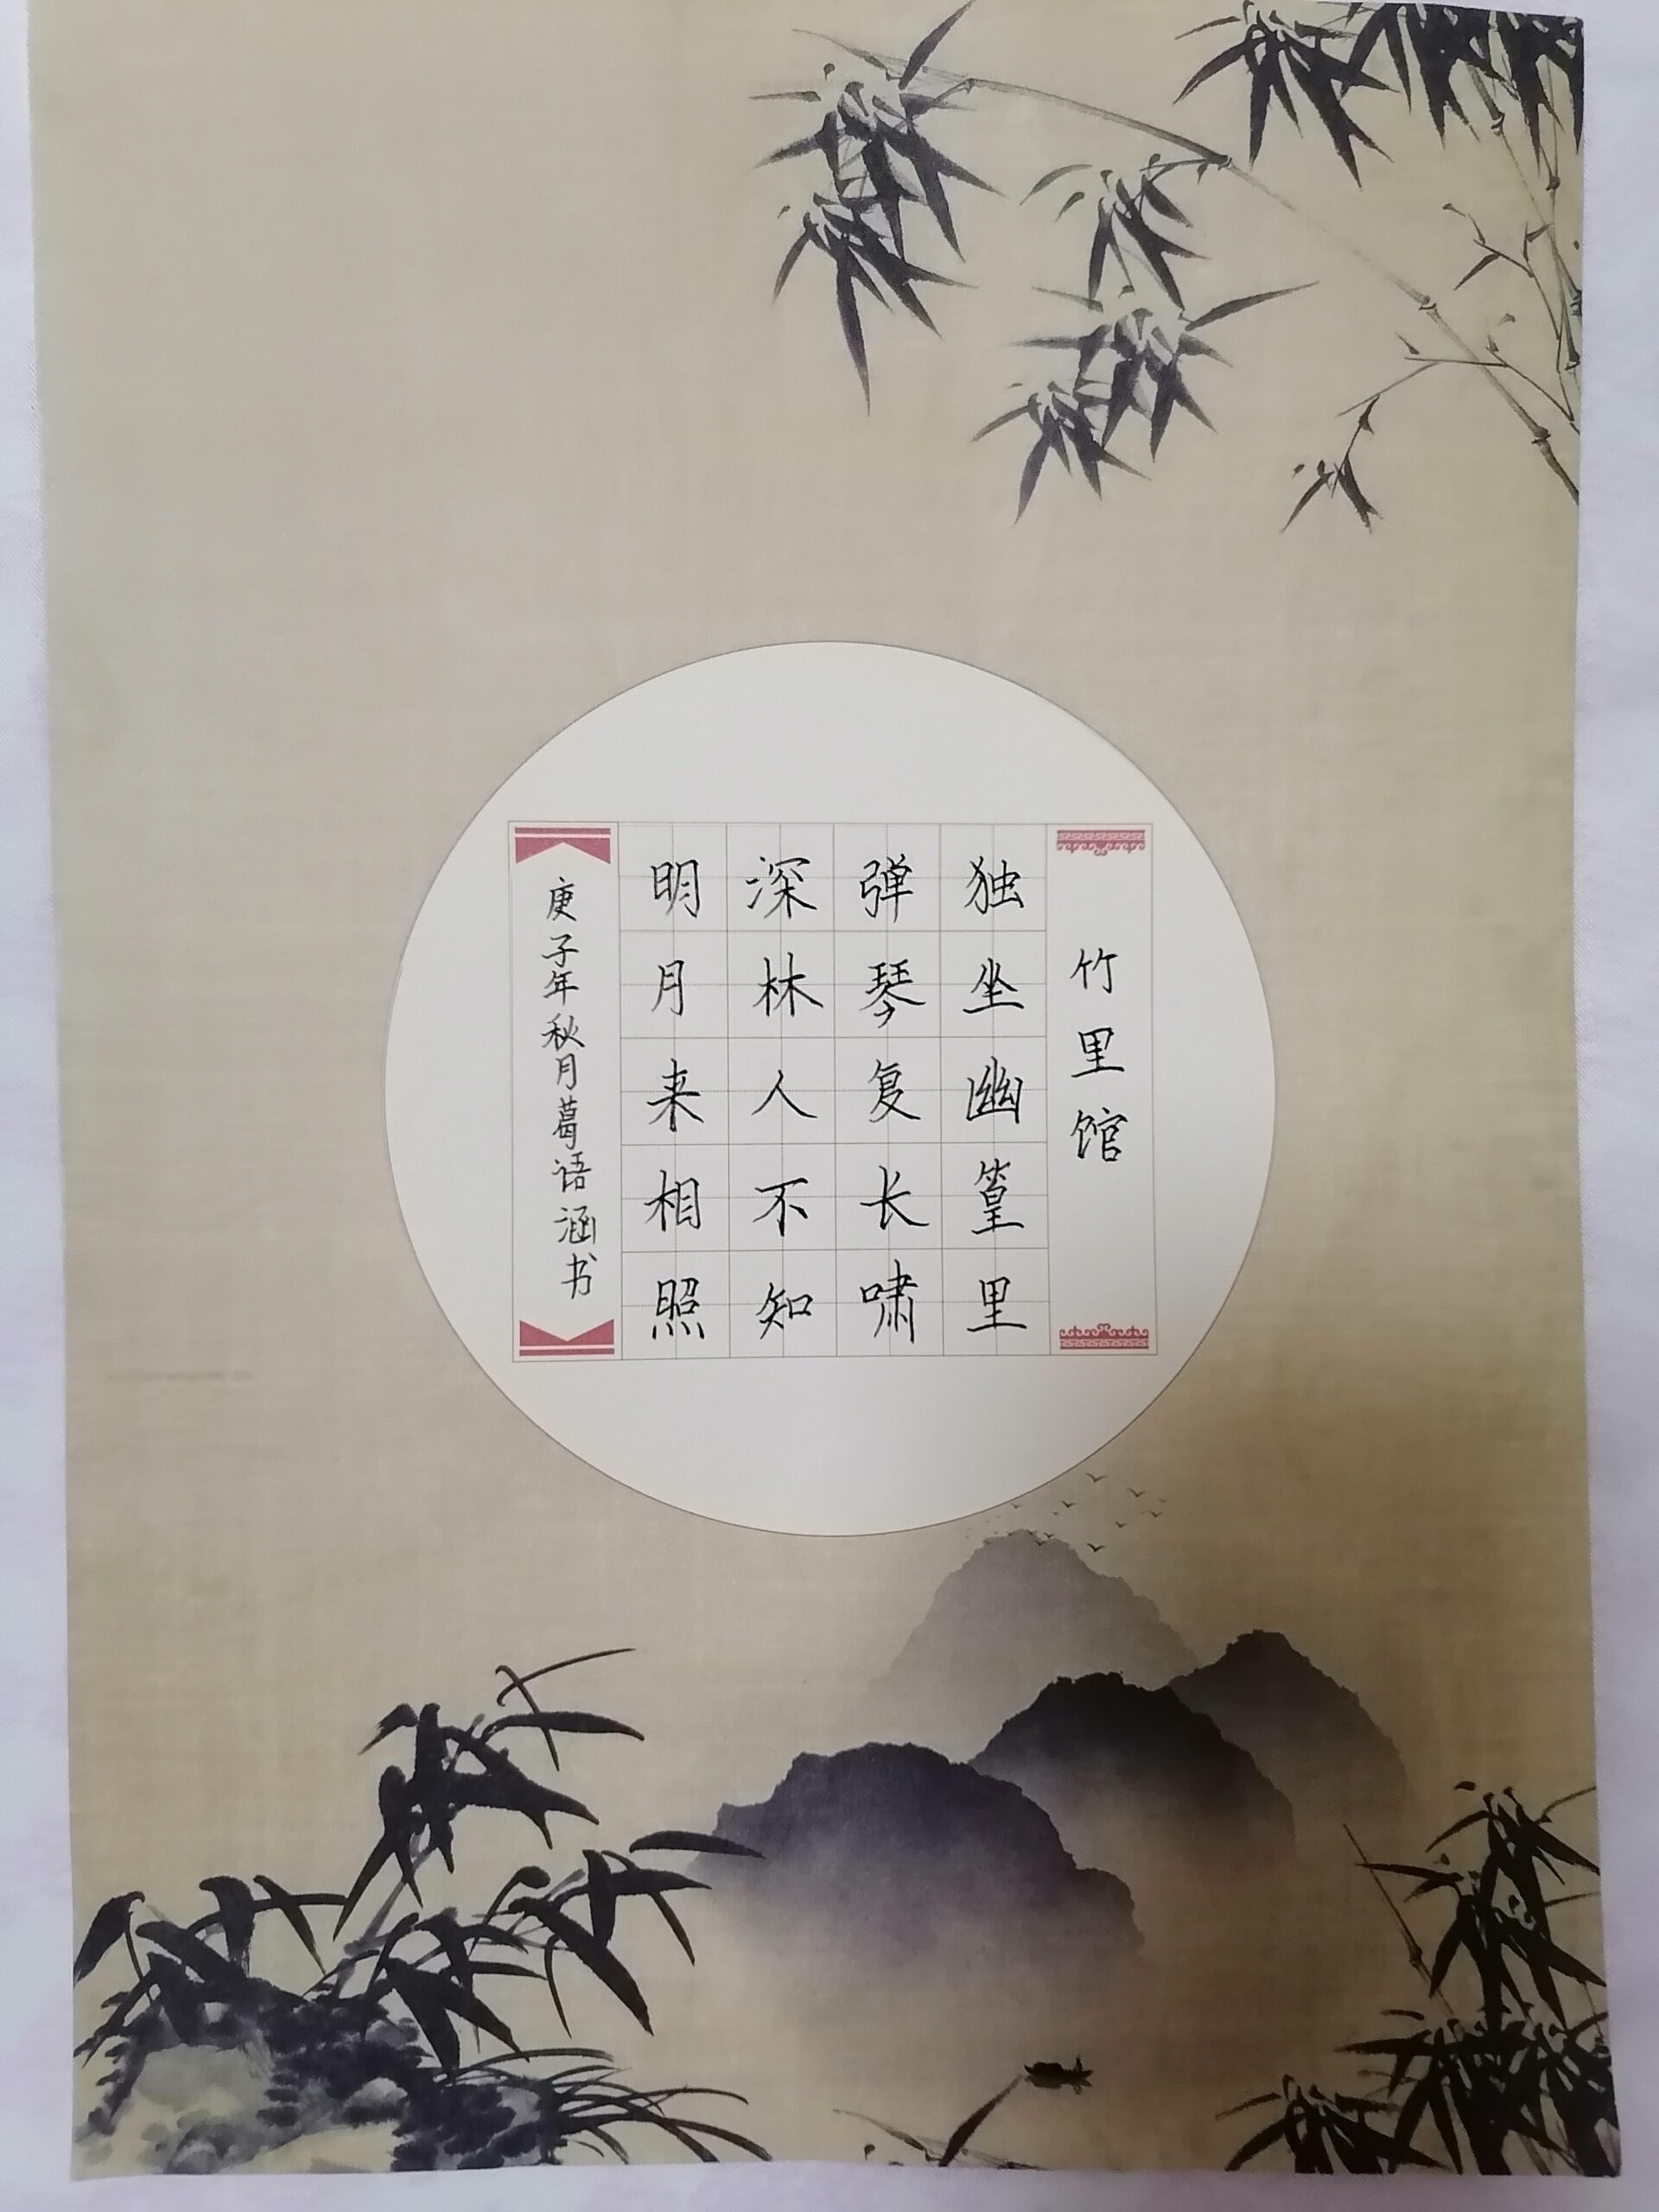 竹里馆
独坐幽篁里
弹琴复长啸
深林人不知
明月来相照
庚子年秋月葛语涵书